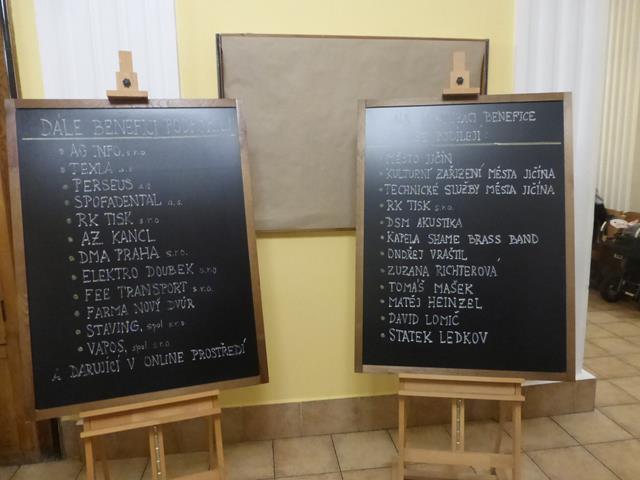 DÁLE BENEFICI PODPOŘILI
AG INFO, s.r.o.
TEXLA a.s.
PERSEUS a.s.
SPOFADENTAL a.s.
RK TISK s.r.o.
AZ KANCL
DMA PRAHA s.r.o.
ELEKTRO DOUBEK s.r.o.
FEE TRANSPORT s.r.o.
FARMA NOVÝ DVŮR
STAVING, spol s.r.o.
VAPOS, spol s.r.o.
A DARUJÍCÍ V ONLINE PROSTŘEDÍ
NA BENEFICE
SE PODÍLEJÍ:
MĚSTO JIČÍN
KULTURNÍ ZAŘÍZENÍ MĚSTA JIČÍNA
TECHNICKÉ SLUŽBY MĚSTA JIČÍNA
RK TISK s.r.o.
DSM AKUSTIKA
KAPELA SHAME BRASS BAND
ONDŘEJ VRAŠTIL
ZUZANA RICHTEROVÁ
TOMÁŠ MAŠEK
MATĚJ HEINZEL
DAVID LOMIČ
STATEK LEDKOV